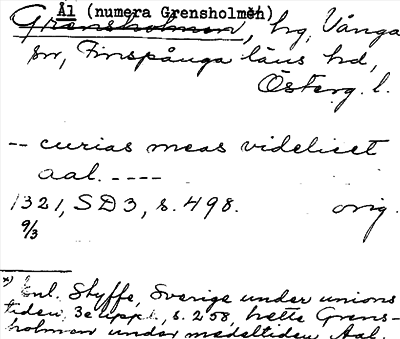 Ål (numera Grensholmen)
Grensholmen, hg, Vånga
sn, Finspånga läns hd,
Österg. l.
-- curias meas videlicet
aal. ----
1321, SD3, s. 498. orig.
9/3
x) Enl. Styffe, Sverige under unions
tiden, 3e uppl., s. 258, hette Grens-
holmen under medeltiden Aal.